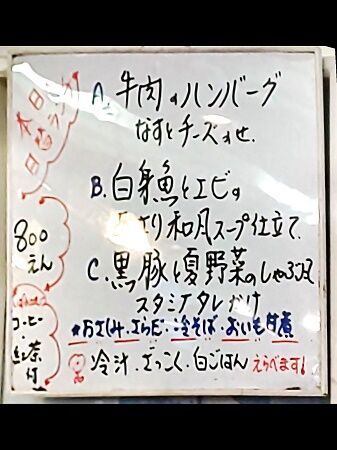 本日
日替
A. 牛肉のハンバーグ
なすとチーズのせ
B. 白身魚とエビの
和風スープ仕立て
C. 黒豚と夏野菜のしゃぶ風
スタミナタレがけ
800
えん
コーヒー
紅茶
付
★おさしみ・さらだ・冷そば・おいも甘煮
冷汁・ざっこく・白ごはん えらべます!